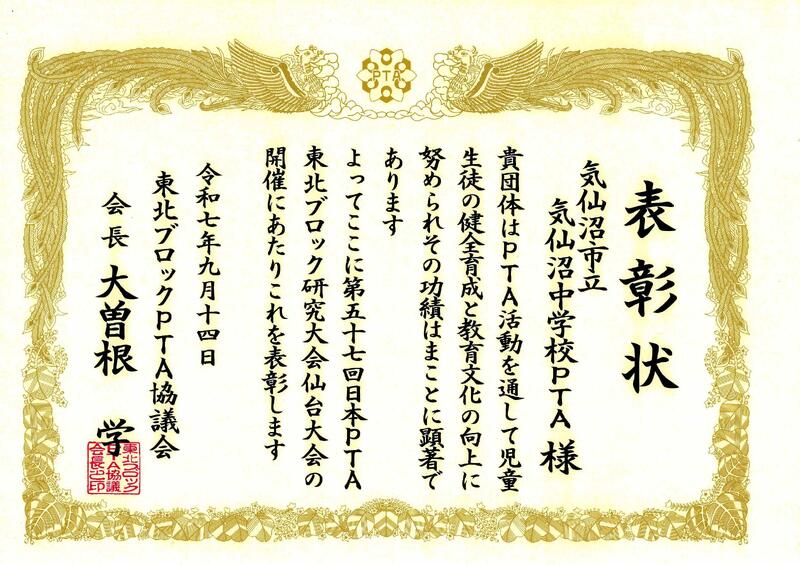 PTA
表彰状
気仙沼市立
気仙沼中学校PTA 様
貴団体はPTA活動を通して児童
生徒の健全育成と教育文化の向上に
努められその功績はまことに顕著で
あります
よってここに第五十七回日本PTA
東北ブロック研究大会仙台大会の
開催にあたりこれを表彰します
令和七年九月十四日
東北ブロックPTA協議会
会長 大曽根 学
東北ブロック
PTA協議
会長之印